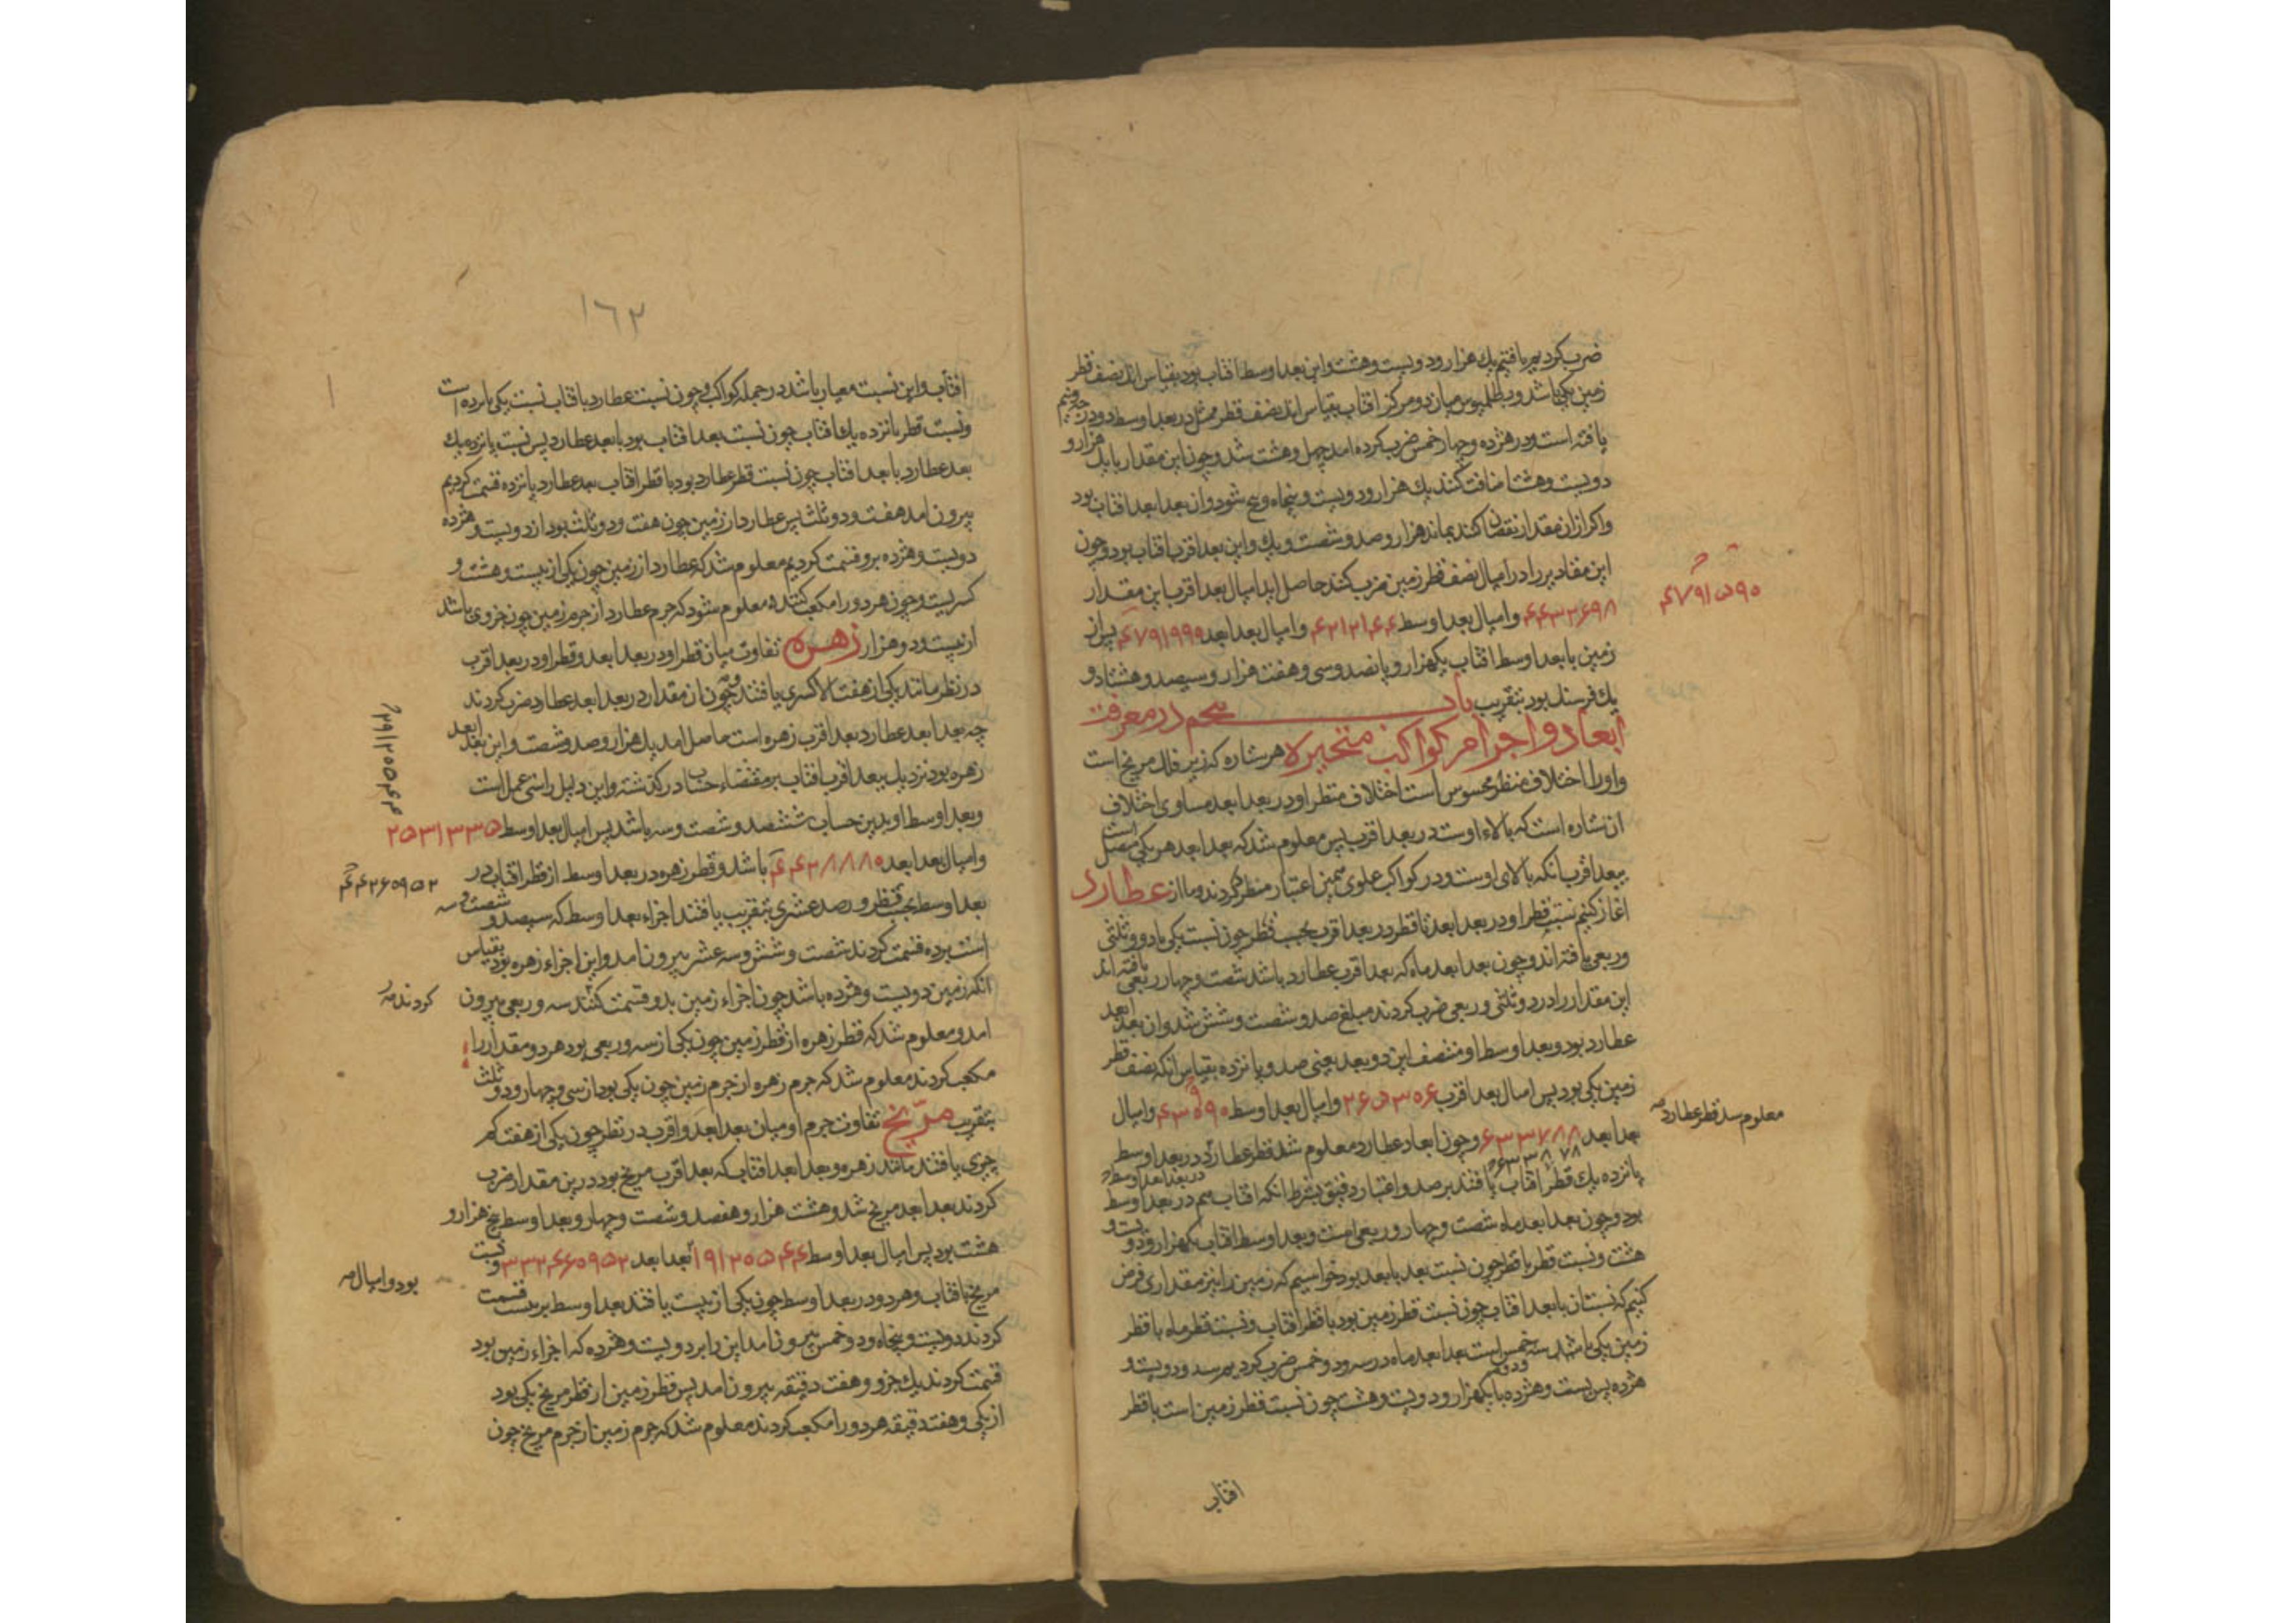 ضرب کردیم یافتیم یک هزار و دویست و هشت و این بعد اوسط افتاب بود بقیاس انک نصف قطر
زمین یکی باشد و بطلمیوس میان دو مرکز افتاب بقیاس انک نصف قطر در بعد اوسط دو درجه و نیم
یافته است و در هژده و چهار خمس ضرب کرده امد چهل و هشت شد و چون این مقدار با یک هزار و
دویست و هشت اضافت کنند یک هزار و دویست و پنجاه و پنج شود و ان بعد ابعد افتاب بود
و اکر از ان مقدار نقصان کنند بماند هزار و صد و شصت و یک و این بعد اقرب افتاب بود و چون
این مقادیر را در امیال نصف قطر زمین ضرب کنند حاصل اید امیال بعد اقرب این مقدار
۴۴۳۲۶۹۸ و امیال بعد اوسط ۴۶۱۲۱۴۴ و امیال بعد ابعد ۴۷۹۱۹۹۹ پس از
۴۷۹۱۵۹۰
زمین با بعد اوسط افتاب یکهزار و پانصد و سی و هفت هزار و سیصد و هشتاد و
یک فرسنک بود بتقریب باب پنجم در معرفت
ابعاد و اجرام کواکب متحیره هر ستاره که زیر فلک مریخ است
و اورا اختلاف منظر محسوس است اختلاف منظر او در بعد ابعد مساوی اختلاف
ان ستاره است که بالاء اوست در بعد اقرب پس معلوم شد که بعد ابعد هر یکی متصل است
ببعد اقرب انکه بالای اوست و در کواکب علوی همین اعتبار منظر کردند و ما از عطارد
اغاز کنیم نسبت قطر او در بعد ابعد تا قطر در بعد اقرب بحسب نظر چون نسبت یکی با دو و ثلثی
و ربعی یافته اند و چون بعد ابعد ماه که بعد اقرب عطارد باشد شصت و چهار و ربعی یافته اند
این مقدار را در دو و ثلثی و ربعی ضرب کردند مبلغ صد و شصت و شش شد و ان بعد ابعد
عطارد بود و بعد اوسط او منتصف این دو بعد یعنی صد و پانزده بقیاس انکه نصف قطر
زمین یکی بود پس امیال بعد اقرب ۲۴۵۳۰۶ و امیال بعد اوسط ۴۳۹۰۹۰ و امیال
بعد ابعد ۶۳۳۷۸۸ و چون ابعاد عطارد معلوم شد قطر عطارد در بعد اوسط
۶۳۳۸۷۸
معلوم شد قطر عطارد صح
پانزده یک قطر افتاب یافتند برصد و اعتبار دقیق بشرط انکه افتاب هم در بعد اوسط
در بعد اوسط
بود و چون بعد ابعد ماه شصت و چهار و ربعی است و بعد اوسط افتاب یکهزار و دویست و
هشت و نسبت قطر با قطر چون نسبت بعد با بعد بود خواستیم که زمین را نیز مقداری فرض
کنیم که نسبت ان با بعد افتاب چون نسبت قطر زمین بود با قطر افتاب و نسبت قطر ماه با قطر
زمین یکی باشد با سه و دو خمس است بعد ابعد ماه در سه و دو خمس ضرب کردیم رسید دویست و
هژده پس نسبت دویست و هژده با یکهزار و دویست و هشت چون نسبت قطر زمین است با قطر
افتاب
۱۶۲
افتاب و این نسبت معیار باشد در جمله کواکب و چون نسبت عطارد با افتاب نسبت یکی با پانزده است
و نسبت قطر پانزده یک افتاب چون نسبت بعد افتاب بود با بعد عطارد پس نسبت پانزده یک
بعد عطارد با بعد افتاب چون نسبت قطر عطارد بود با قطر افتاب بعد عطارد بر پانزده قسمت کردیم
بیرون امد هفت و دو ثلث پس عطارد از زمین چون هفت و دو ثلث بود از دویست و هژده
دویست و هژده برو قسمت کردیم معلوم شد که عطارد از زمین چون یکی از بیست و هشت و
کسریست و چون هر دو را مکعب کنند معلوم شود که جرم عطارد از جرم زمین چون جزوی باشد
از بیست و دو هزار زهره تفاوت میان قطر او در بعد ابعد و قطر او در بعد اقرب
در نظر مانند یکی از هفت الا کسری یافتند و چون ان مقدار در بعد ابعد عطارد ضرب کردند
چه بعد ابعد عطارد بعد اقرب زهره است حاصل امد یک هزار و صد و شصت و این بعد ابعد
زهره بود نزدیک ببعد اقرب افتاب بر مقتضاء حساب در کذشته و این دلیل راستی عمل است
و بعد اوسط او بدین حساب ششصد و شصت و سه باشد پس امیال بعد اوسط ۲۵۳۱۳۳۵
و امیال بعد ابعد ۴۴۲۸۸۸۰ باشد و قطر زهره در بعد اوسط از قطر افتاب در
بعد اوسط بحسب نظر و رصد عشری بتقریب یافتند اجزاء بعد اوسط که سیصد و شصت و سه
است بر ده قسمت کردند شصت و شش و سه عشر بیرون امد و این اجزاء زهره بود بقیاس
انکه زمین دویست و هژده باشد چون اجزاء زمین بدو قسمت کنند سه و ربعی بیرون
کردند صح
امد و معلوم شد که قطر زهره از قطر زمین چون یکی از سه و ربعی بود هر دو مقدار را
مکعب کردند معلوم شد که جرم زهره از جرم زمین چون یکی بود از سی و چهار و دو ثلث
بتقریب مریخ تفاوت جرم او میان بعد ابعد و اقرب در نظر چون یکی از هفت کم
چیزی یافتند مانند زهره و بعد ابعد افتاب که بعد اقرب مریخ بود درین مقدار ضرب
کردند بعد ابعد مریخ شد و هشت هزار و هفصد و شصت و چهار و بعد اوسط پنج هزار و
هشت بود پس امیال بعد اوسط ۱۹۱۲۰۵۴۴ بعد ابعد ۳۳۴۶۰۹۵۲ و نسبت
بود و امیال صح
مریخ با افتاب و هر دو در بعد اوسط چون یکی از بیست یافتند بعد اوسط بر بیست قسمت
کردند دویست و پنجاه و دو خمس بیرون امد این را بر دویست و هژده که اجزاء زمین بود
قسمت کردند یک جزو و هفت دقیقه بیرون امد پس قطر زمین از قطر مریخ یکی بود
از یکی و هفت دقیقه هر دو را مکعب کردند معلوم شد که جرم زمین از جرم مریخ چون